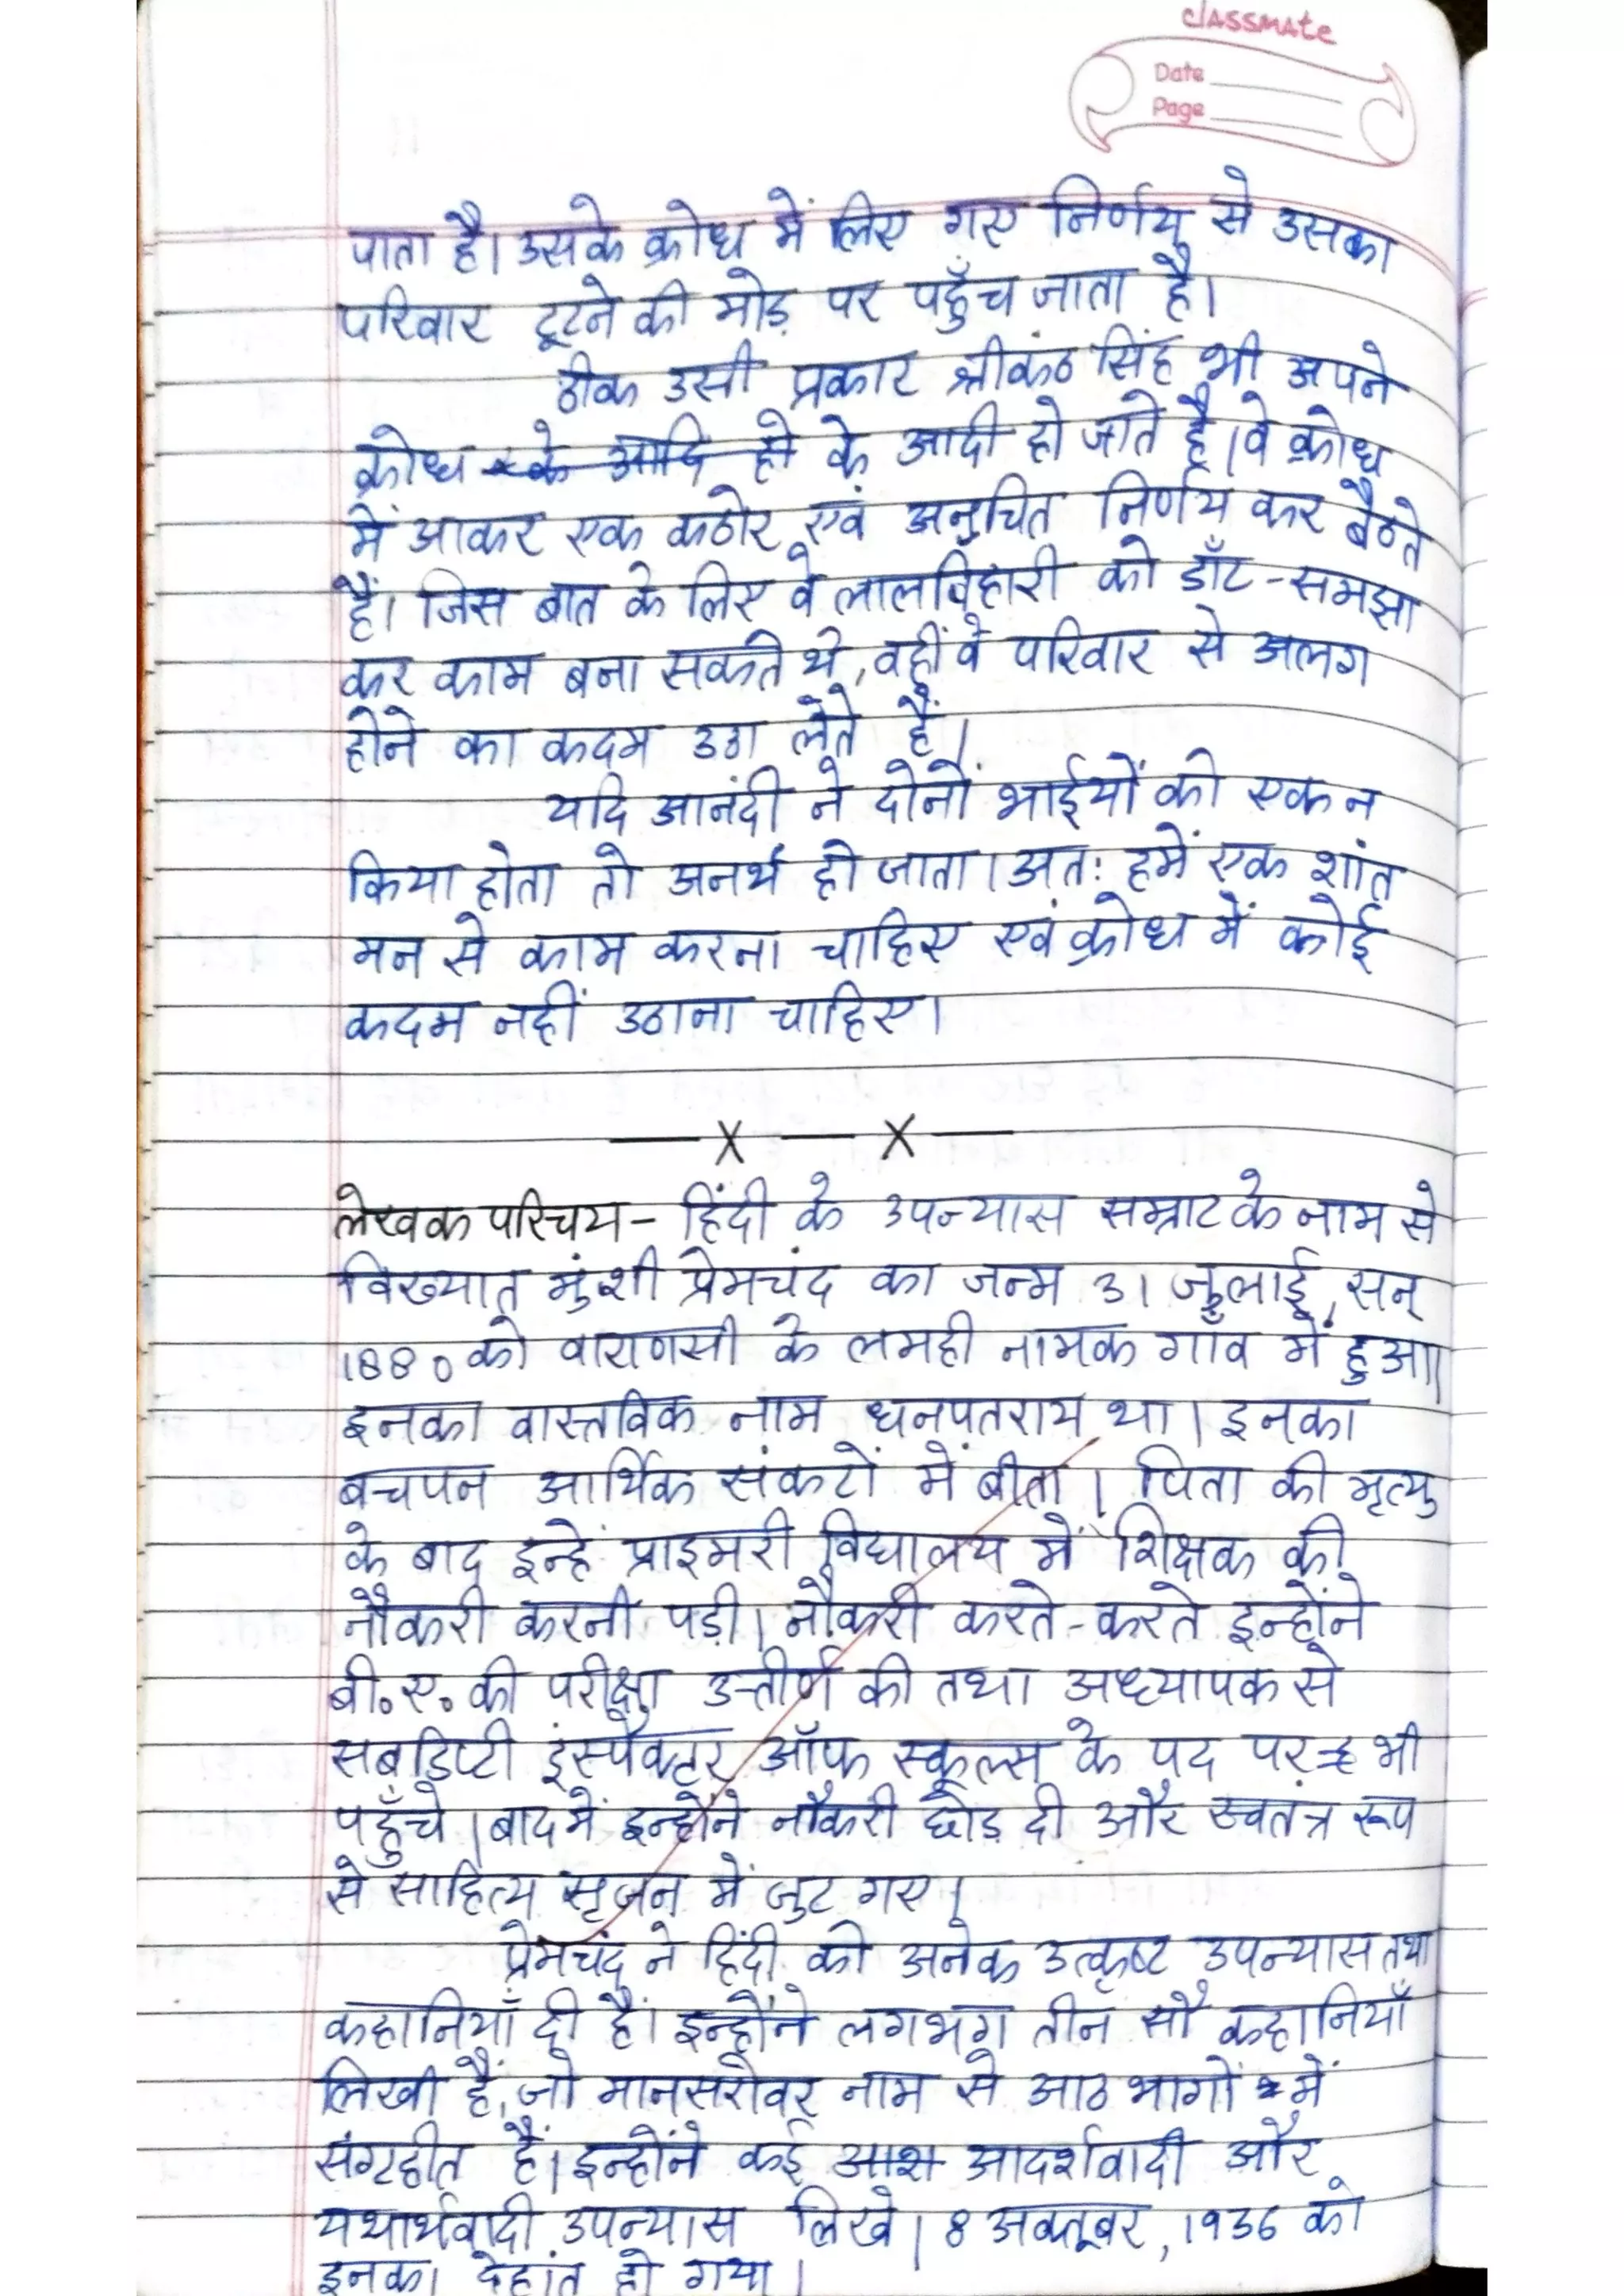 classmate
Date
Page
पाता है। उसके क्रोध में लिए गए निर्णय से उसका
परिवार टूटने की मोड़ पर पहुँच जाता है।
ठीक उसी प्रकार श्रीकंठ सिंह भी अपने
क्रोध के आदि हो के आदी हो जाते है। वे क्रोध
में आकर एक कठोर एवं अनुचित निर्णय कर बैठते
हैं। जिस बात के लिए वे लालविहारी को डाँट-समझा
कर काम बना सकते थे, वहीं वे परिवार से अलग
होने का कदम उठा लेते हैं।
यदि आनंदी ने दोनों भाईयों को एक न
किया होता तो अनर्थ हो जाता। अतः हमें एक शांत
मन से काम करना चाहिए एवं क्रोध में कोई
कदम नहीं उठाना चाहिए।
— X — X —
लेखक परिचय - हिंदी के उपन्यास सम्राट के नाम से
विख्यात मुंशी प्रेमचंद का जन्म 31 जुलाई, सन्
1880 को वाराणसी के लमही नामक गाँव में हुआ।
इनका वास्तविक नाम धनपतराय था। इनका
बचपन आर्थिक संकटों में बीता। पिता की मृत्यु
के बाद इन्हे प्राइमरी विद्यालय में शिक्षक की
नौकरी करनी पड़ी। नौकरी करते-करते इन्होंने
बी॰ए॰ की परीक्षा उत्तीर्ण की तथा अध्यापक से
सबडिप्टी इंस्पेक्टर ऑफ स्कूल्स के पद पर भी
पहुँचे। बाद में इन्होंने नौकरी छोड़ दी और स्वतंत्र रूप
से साहित्य सृजन में जुट गए।
प्रेमचंद ने हिंदी को अनेक उत्कृष्ट उपन्यास तथा
कहानियाँ दी हैं। इन्होंने लगभग तीन सौ कहानियाँ
लिखी हैं, जो मानसरोवर नाम से आठ भागों में
संग्रहीत हैं। इन्होंने कई आश आदर्शवादी और
यथार्थवादी उपन्यास लिखे। 8 अक्तूबर, 1936 को
इनका देहांत हो गया।